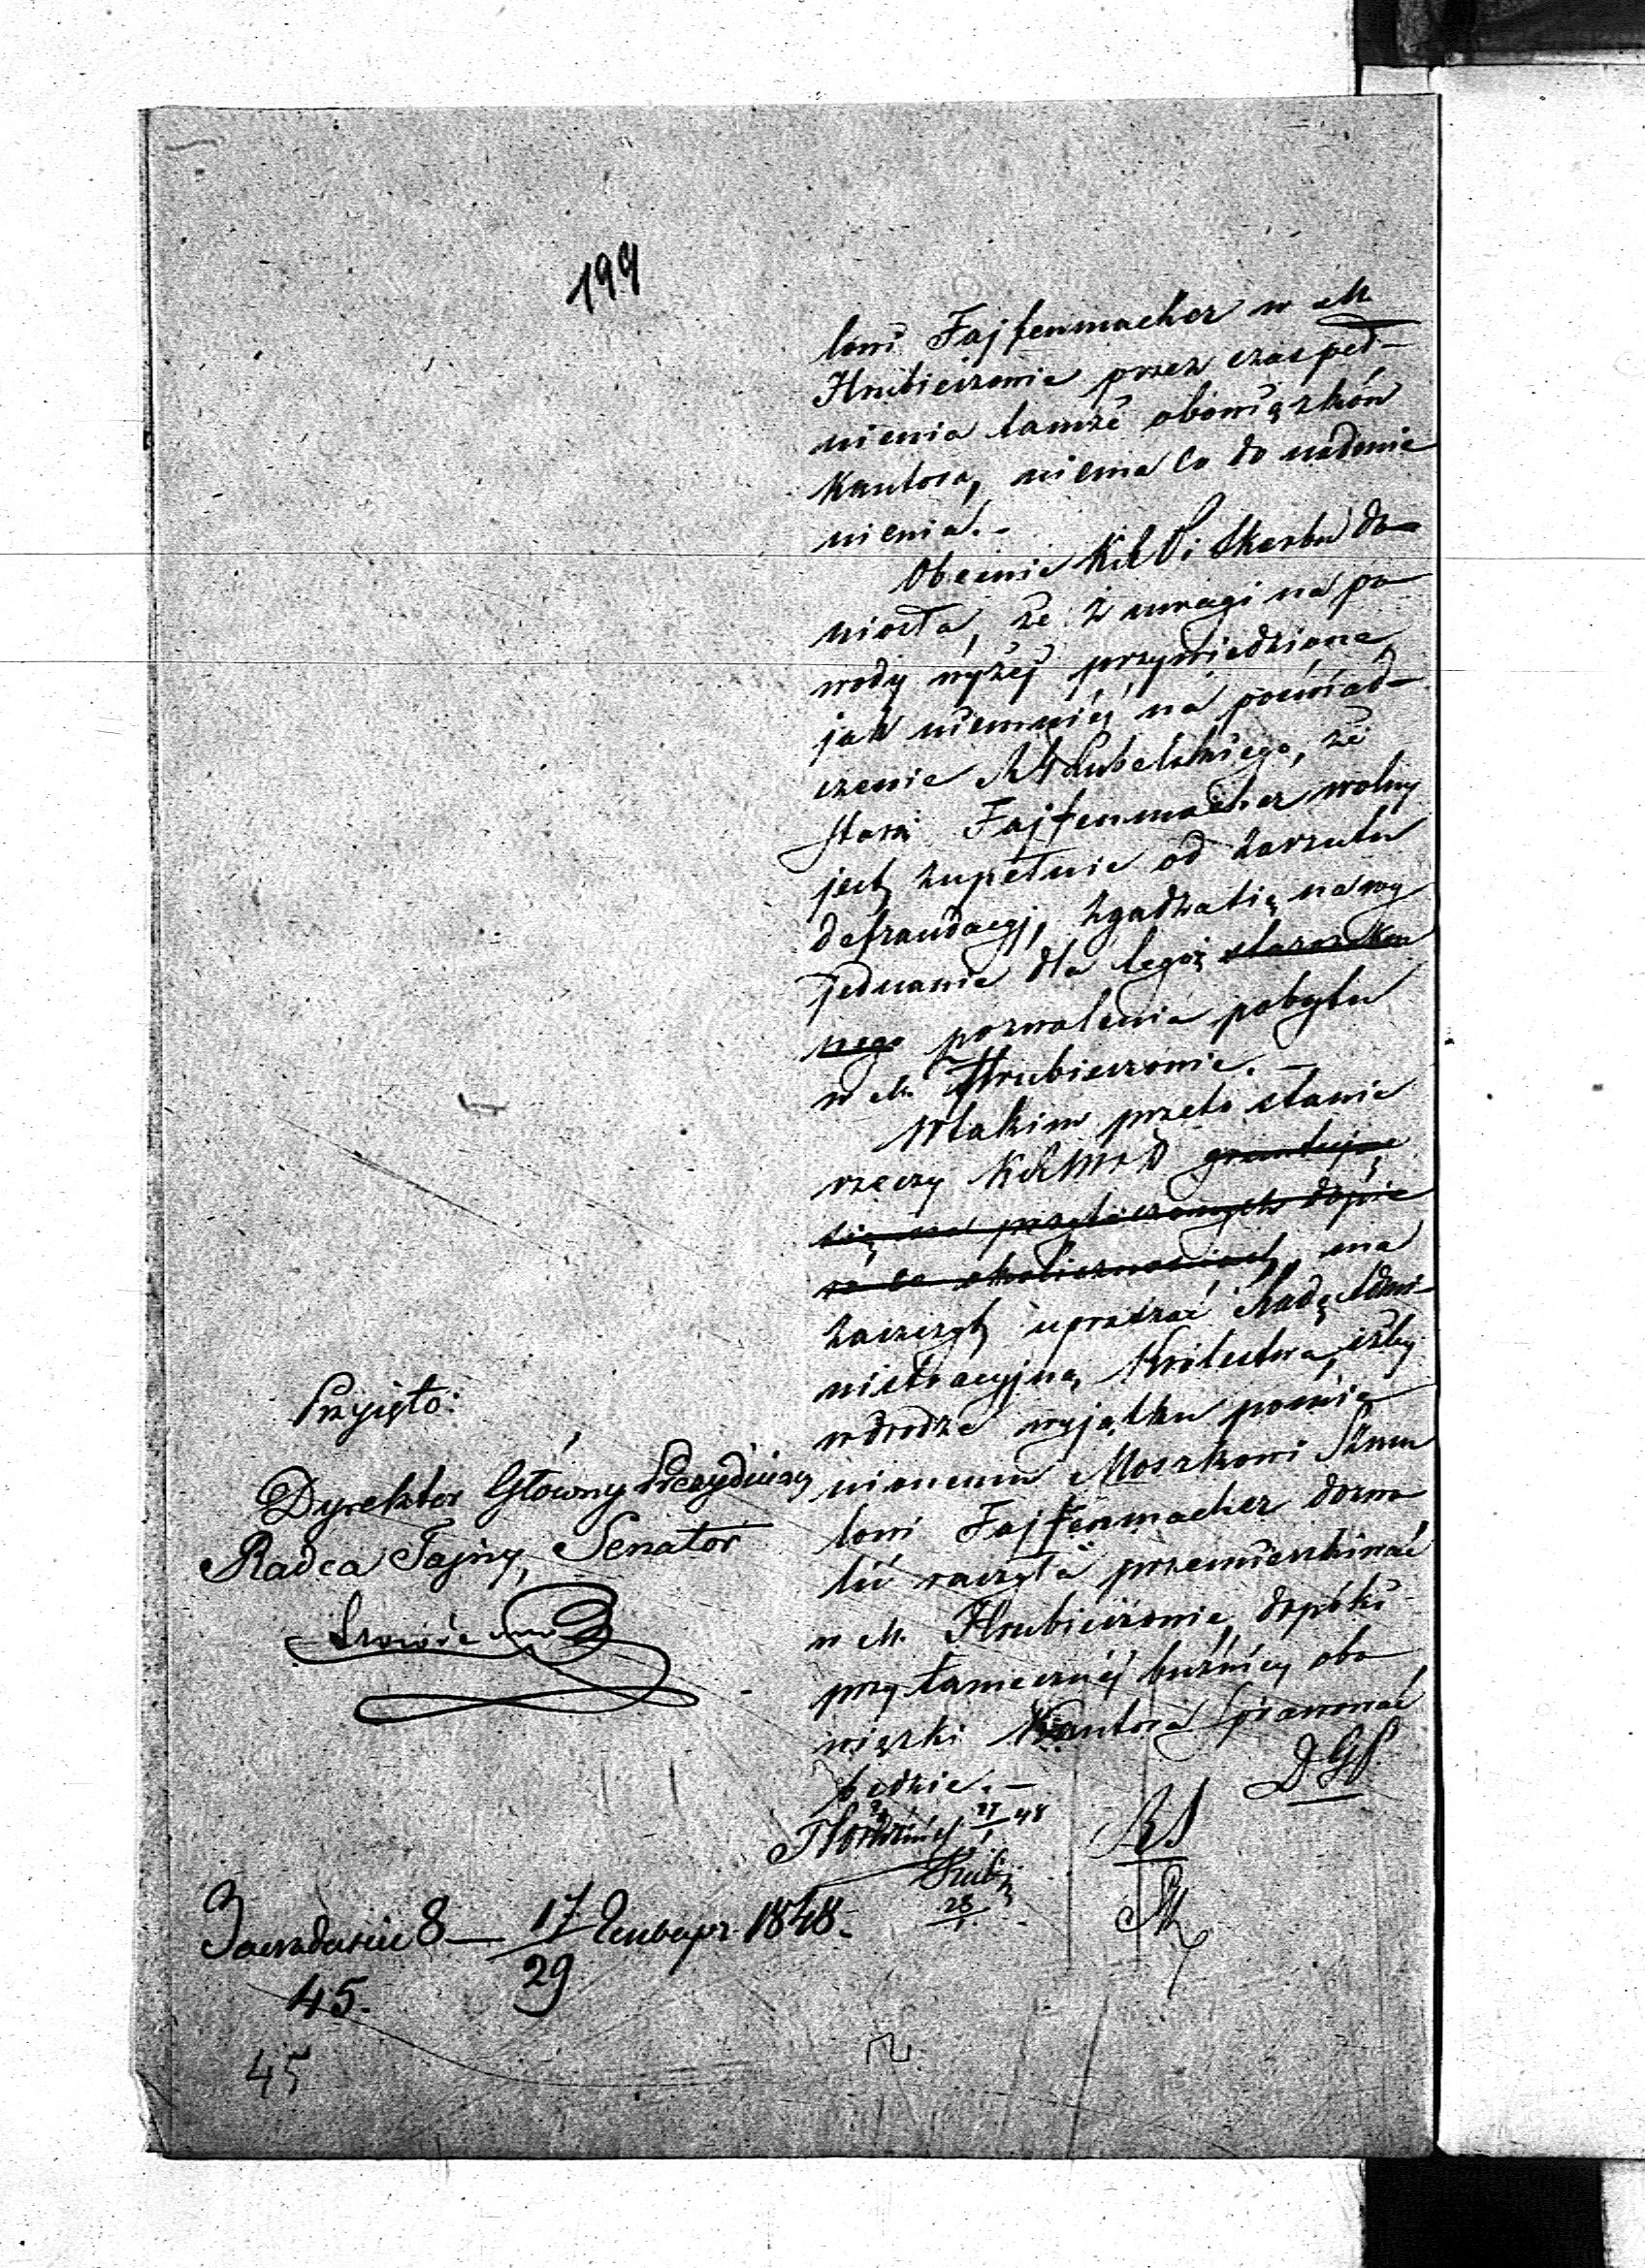 199
lowi Fajfenmacher w M.
Hrubieszowie przez czas peł-
nienia tamże obowiązków
Kantora, niema co do nadmie
nienia.-
Obecnie KRP i Skarbu do
niosła, że z uwagi na po
wody wyżej przywiedzione,
jak niemniej na poświad-
czenie Lubelskiego, że
stary Fajfenmacher wolny
jest zupełnie od zarzutu
defraudacyj, zgadza się na wy
jednanie dla tegoż starozkon
nego pozwolenia pobytu
w M. Hrubieszowie. -
W takim przeto stanie
rzeczy KRSWiD gruntując
się na przytoczonych dopie
ro okolicznościach, ma
zaszczyt upraszać Radę Admi-
nistracyjną Królestwa, iżby
w drodze wyjątku pomie
nionemu Moszkowi Szmu
lowi Fajfenmacher dozwo
lić raczyła przemieszkiwać
w M. Hrubieszowie, dopóki
przy tamecznej bużnicy obo
wiązki Kantora sprawować
będzie. -
Przyięto:
Dyrektor Główny Prezydujący
Radca Tajny, Senator
DGP.
28
17
29 Генваря 1848.
45.
45